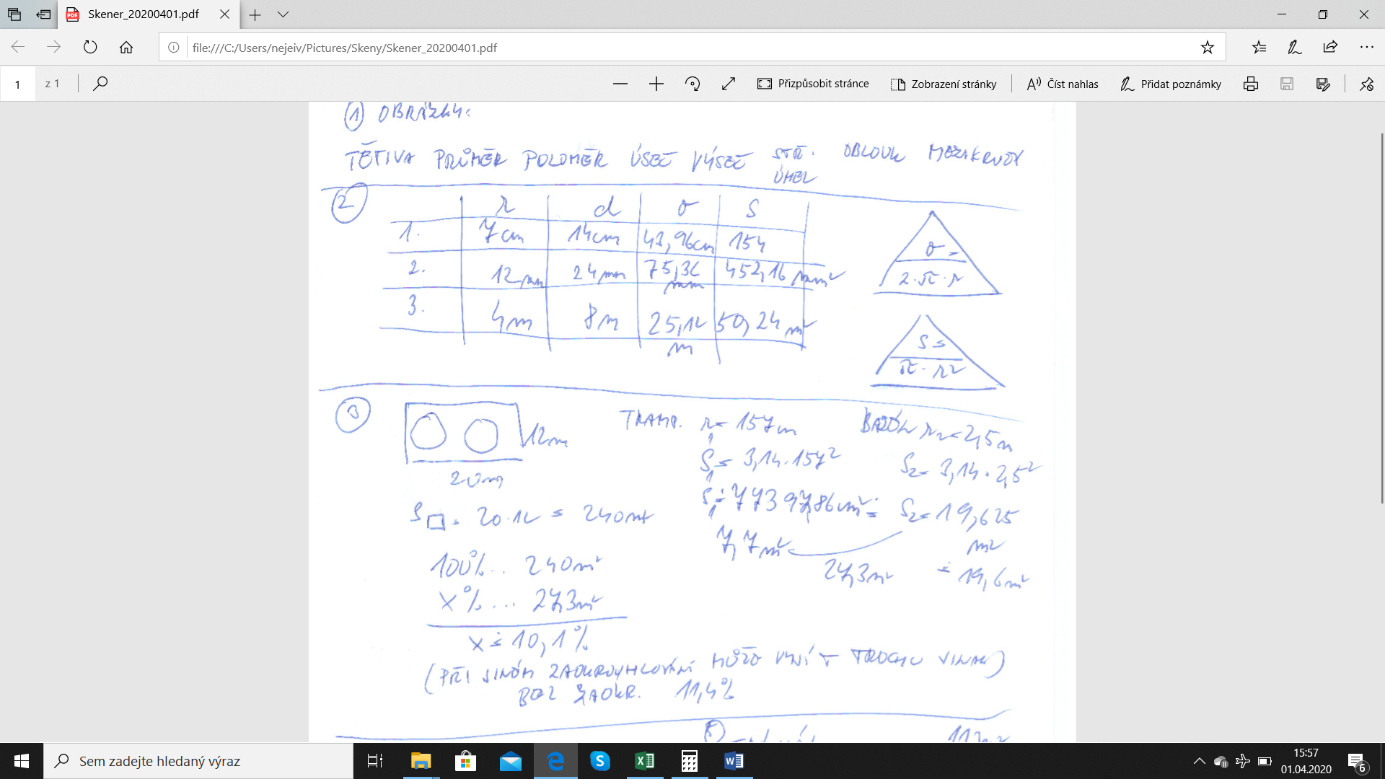 Skener_20200401.pdf
file:///C:/Users/nejeiv/Pictures/Skeny/Skener_20200401.pdf
1 z 1 Přizpůsobit stránce Zobrazení stránky Číst nahlas Přidat poznámky
1 OBRÁZKY:
TĚTIVA PRŮMĚR POLOMĚR ÚSEČ VÝSEČ STŘ. ÚHEL OBLOUK MEZIKRUŽÍ
2
r d o S
1. 7cm 14cm 43,96cm 154
2. 12mm 24mm 75,36 mm 452,16 mm²
3. 4m 8m 25,12 m 50,24 m²
o =
2·π·r
S =
π·r²
3
12m
20m
TRAMP. r = 157cm
S₁ = 3,14·157²
S₁ = 77397,86cm² =
7,7m²
BAZÉN r₂ = 2,5m
S₂ = 3,14·2,5²
S₂ = 19,625 m²
≐ 19,6m²
27,3m²
S□ = 20·12 = 240m²
100% .. 240m²
x% ... 27,3m²
x ≐ 10,1%
(PŘI JINÉM ZAOKROUHLOVÁNÍ MŮŽE VYJÍT TROCHU JINAK)
BEZ ZAOKR. 11,4%
Sem zadejte hledaný výraz
15:57
01.04.2020
6